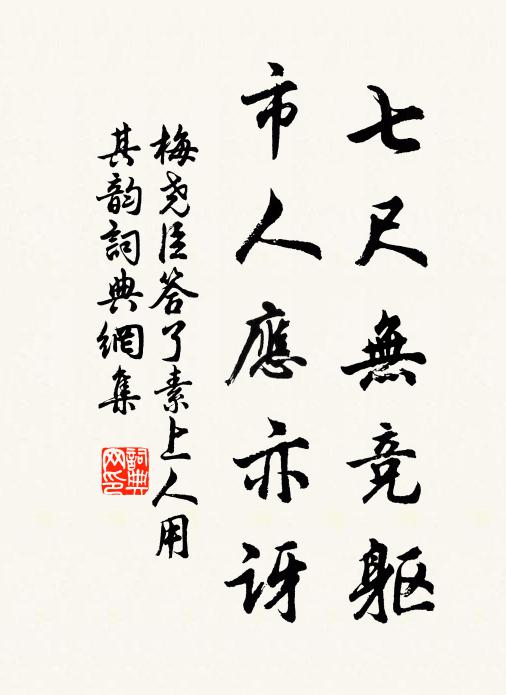 七尺無竞軀
市人應亦訝
梅尧臣答了素上人用
其韵詞典網集
詞典网印